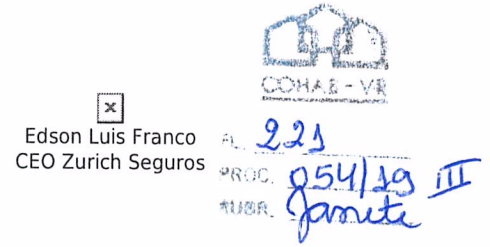 COHAB - VR
Edson Luis Franco
CEO Zurich Seguros
FL. 221
PROC. 054/19 III
RUBR. Janete